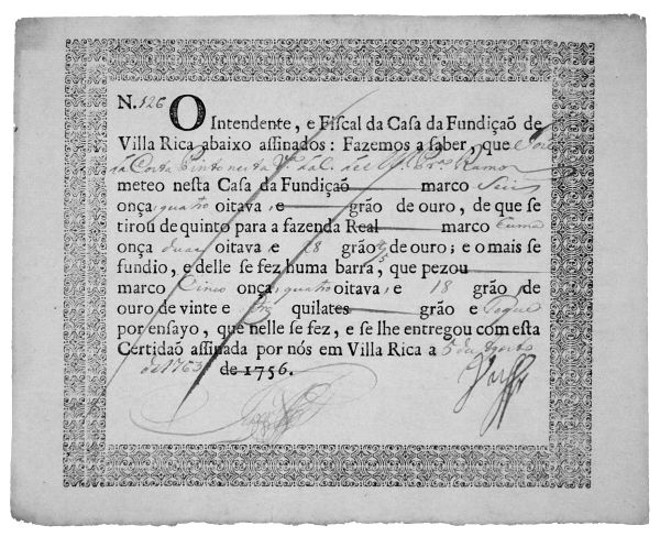 N. 126 O Intendente, e Fiscal da Casa da Fundiçaõ de
Villa Rica abaixo assinados: Fazemos a saber, que José
da Costa Pinto nesta
meteo nesta Casa da Fundiçaõ marco Seis
onça, quatro oitava, e grão de ouro, de que se
tirou de quinto para a fazenda Real marco huma
onça duas oitava, e 28 grão de ouro; e o mais se
fundio, e delle se fez huma barra, que pezou
marco Cinco onça, quatro oitava, e 18 grão de
ouro de vinte e quilates grão e
por ensayo, que nelle se fez, e se lhe entregou com esta
Certidaõ assinada por nós em Villa Rica a 5 de Agosto
de 1763 de 1756.